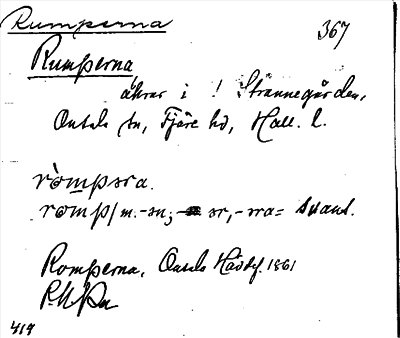 Rumperna
367
Rumperna
åkrar i ! Strannegården,
Onsala sn, Fjäre hd, Hall. l.
ròmpəra.
romp/m. -ən; ər, -ra = svans.
Romperna, Onsala Hävdbf. 1861
417